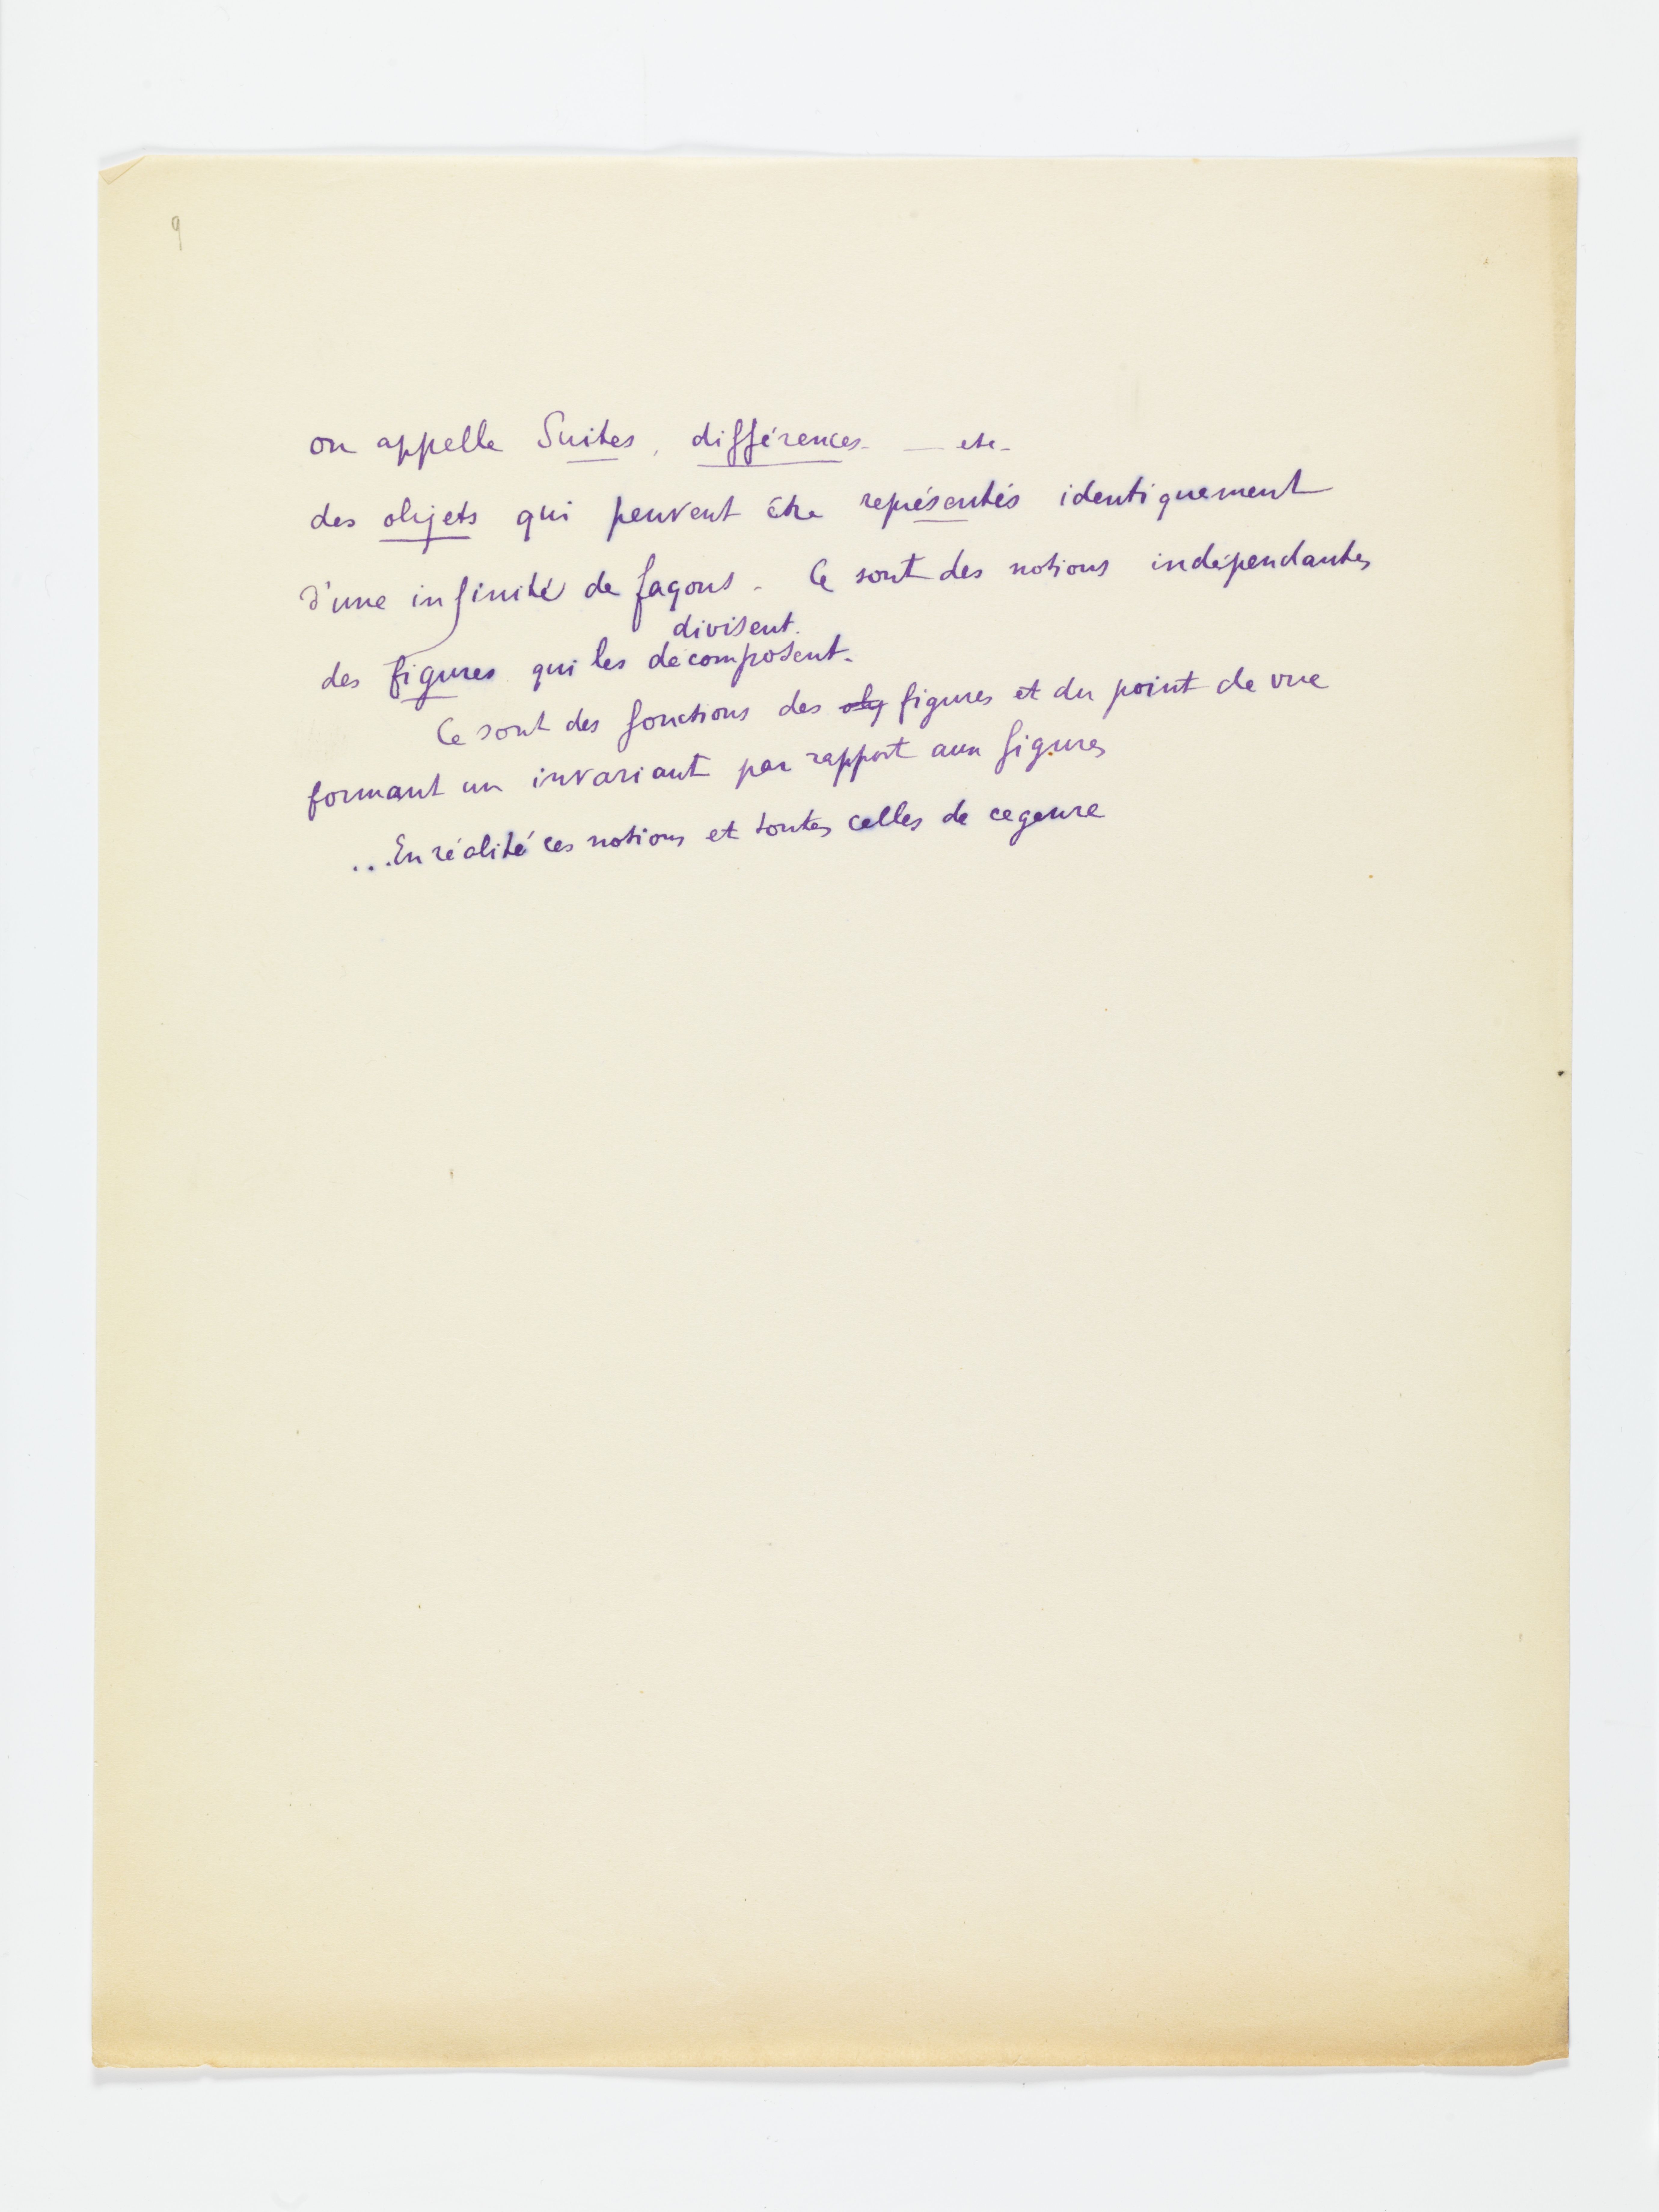 9
on appelle Suites, différences. — etc.
des objets qui peuvent être représentés identiquement
d'une infinité de façons. Ce sont des notions indépendantes
divisent.
des figures qui les décomposent.
Ce sont des fonctions des obj figures et du point de vue
formant un invariant par rapport aux figures
...En réalité ces notions et toutes celles de ce genre